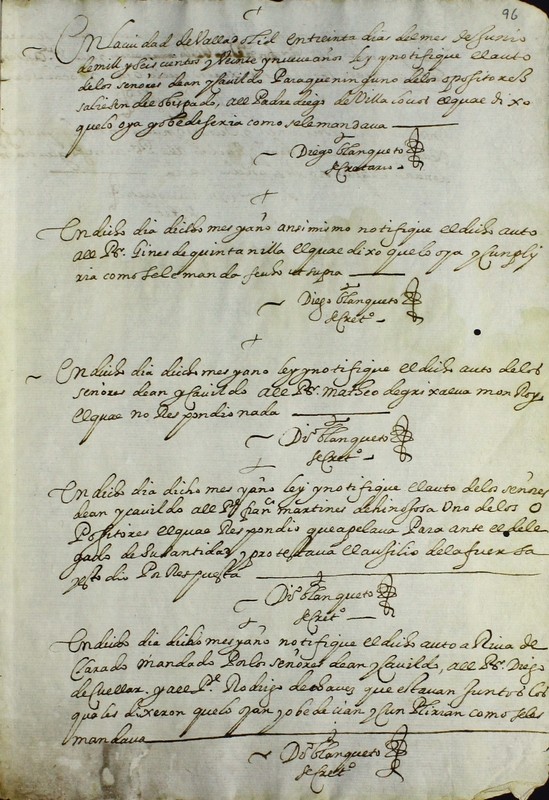 96
En la ciudad de Valladolid en treinta dias del mes de Junio
de mill y seis cientos y Veinte y nueve años ley y notifique el auto
de los señores dean y Cavildo Para que ninguno de los opositores
saliesen del obispado, all Padre diego de Villa lovos elquae dixo
que lo oya y obedeseria como se le mandava
Diego blanqueto
secretario
En dicho dia dicho mes y año ansimismo notifique el dicho auto
all Pe. Gines de quintanilla elquae dixo que lo oya y Cunpli
ria como se le manda fecho ut supra
Diego blanqueto
secreto.
En dicho dia dicho mes y ano ley y notifique el dicho auto de los
señores dean y Cavildo all Pe. matheo de grixalva mon Roy
elquae no Respondio nada
Dio. blanqueto
secreto.
En dicho dia dicho mes y año ley y notifique el auto de los señores
dean y cavildo all Pe. Juan martines de hinojosa Uno de los O
Positores elquae Respondio que apelava Para ante el dele
gado de Su santidad y protestava el ausilio de la fuersa
y esto dio Pr Respuesta
Dio. blanqueto
secreto.
En dicho dia dicho mes y año notifique el dicho auto a Riva de
Clarado mandado Por los señores dean y Cavildo, all Pe. Diego
de Cuellar. y all Pe. Rodrigo de chaves que estavan Juntos los
quales dixeron que lo oyan y obedecian y Cunplirian como se les
mandava
Dio. blanqueto
secreto.